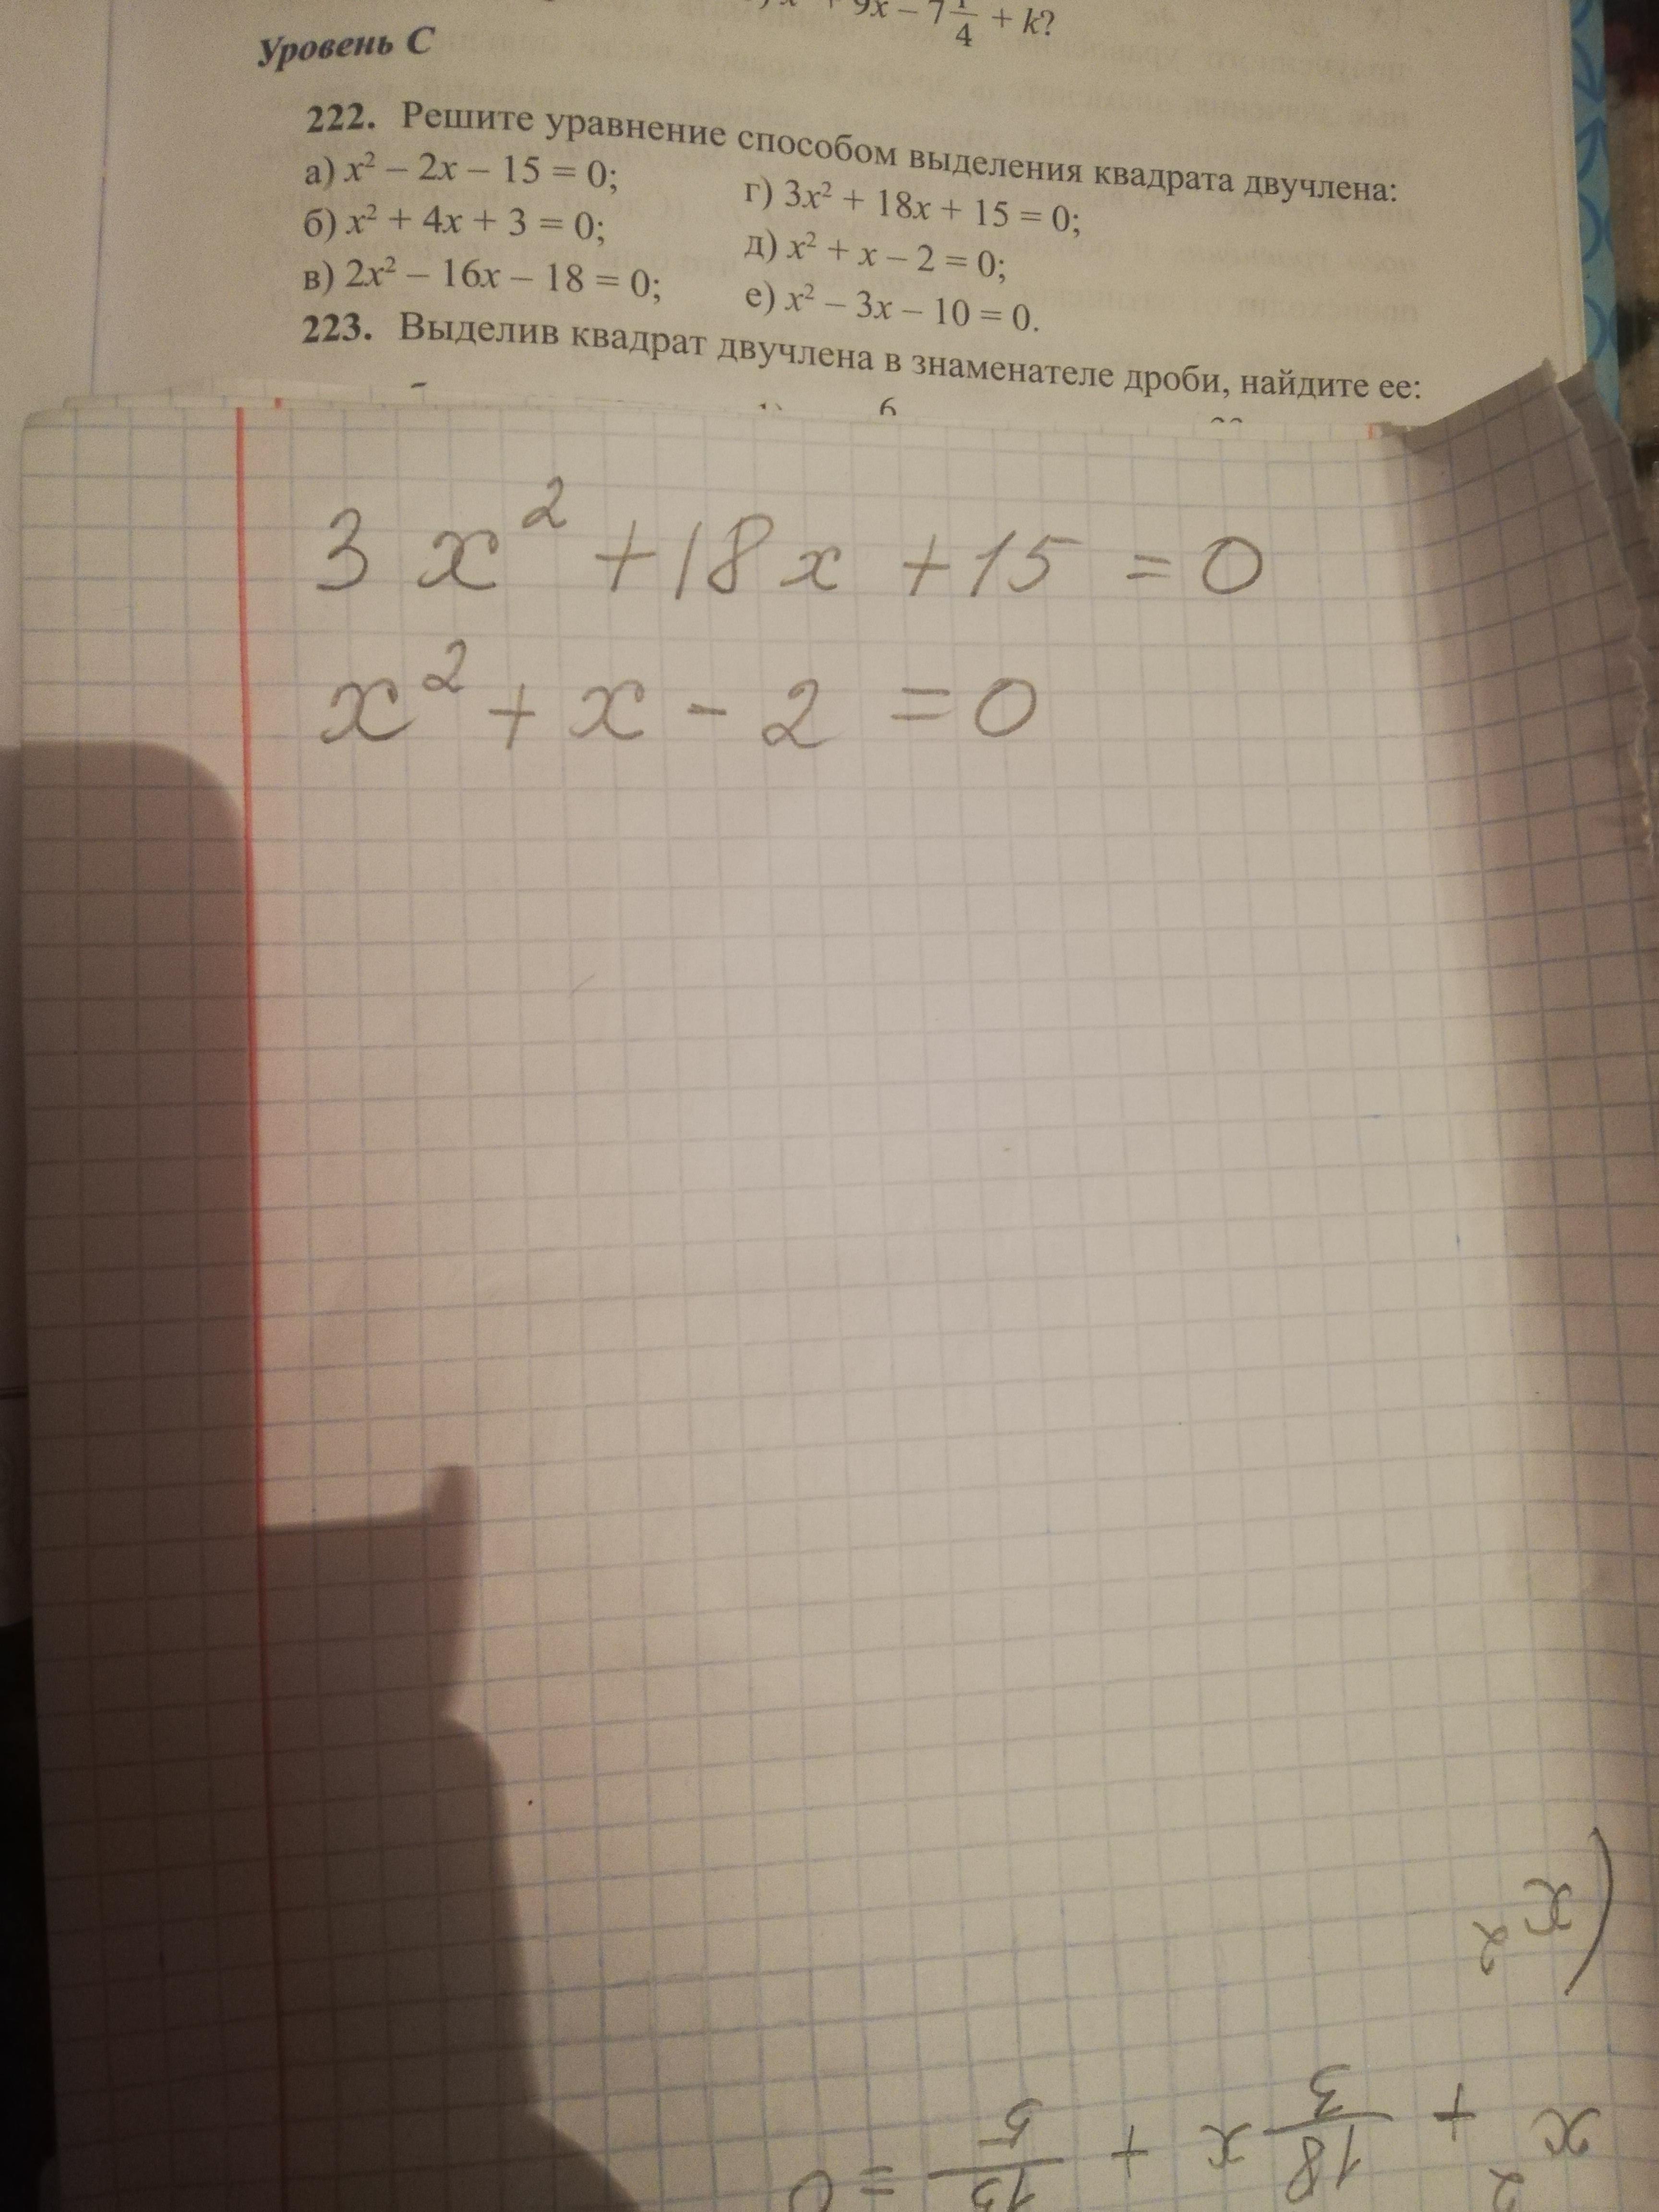 + 9x – 7 1/4 + k?
Уровень С
222. Решите уравнение способом выделения квадрата двучлена:
а) x² – 2x – 15 = 0; г) 3x² + 18x + 15 = 0;
б) x² + 4x + 3 = 0; д) x² + x – 2 = 0;
в) 2x² – 16x – 18 = 0; е) x² – 3x – 10 = 0.
223. Выделив квадрат двучлена в знаменателе дроби, найдите ее:
3x² + 18x + 15 = 0
x² + x - 2 = 0
(x²
x² + 18/3 x + 15/5 = 0